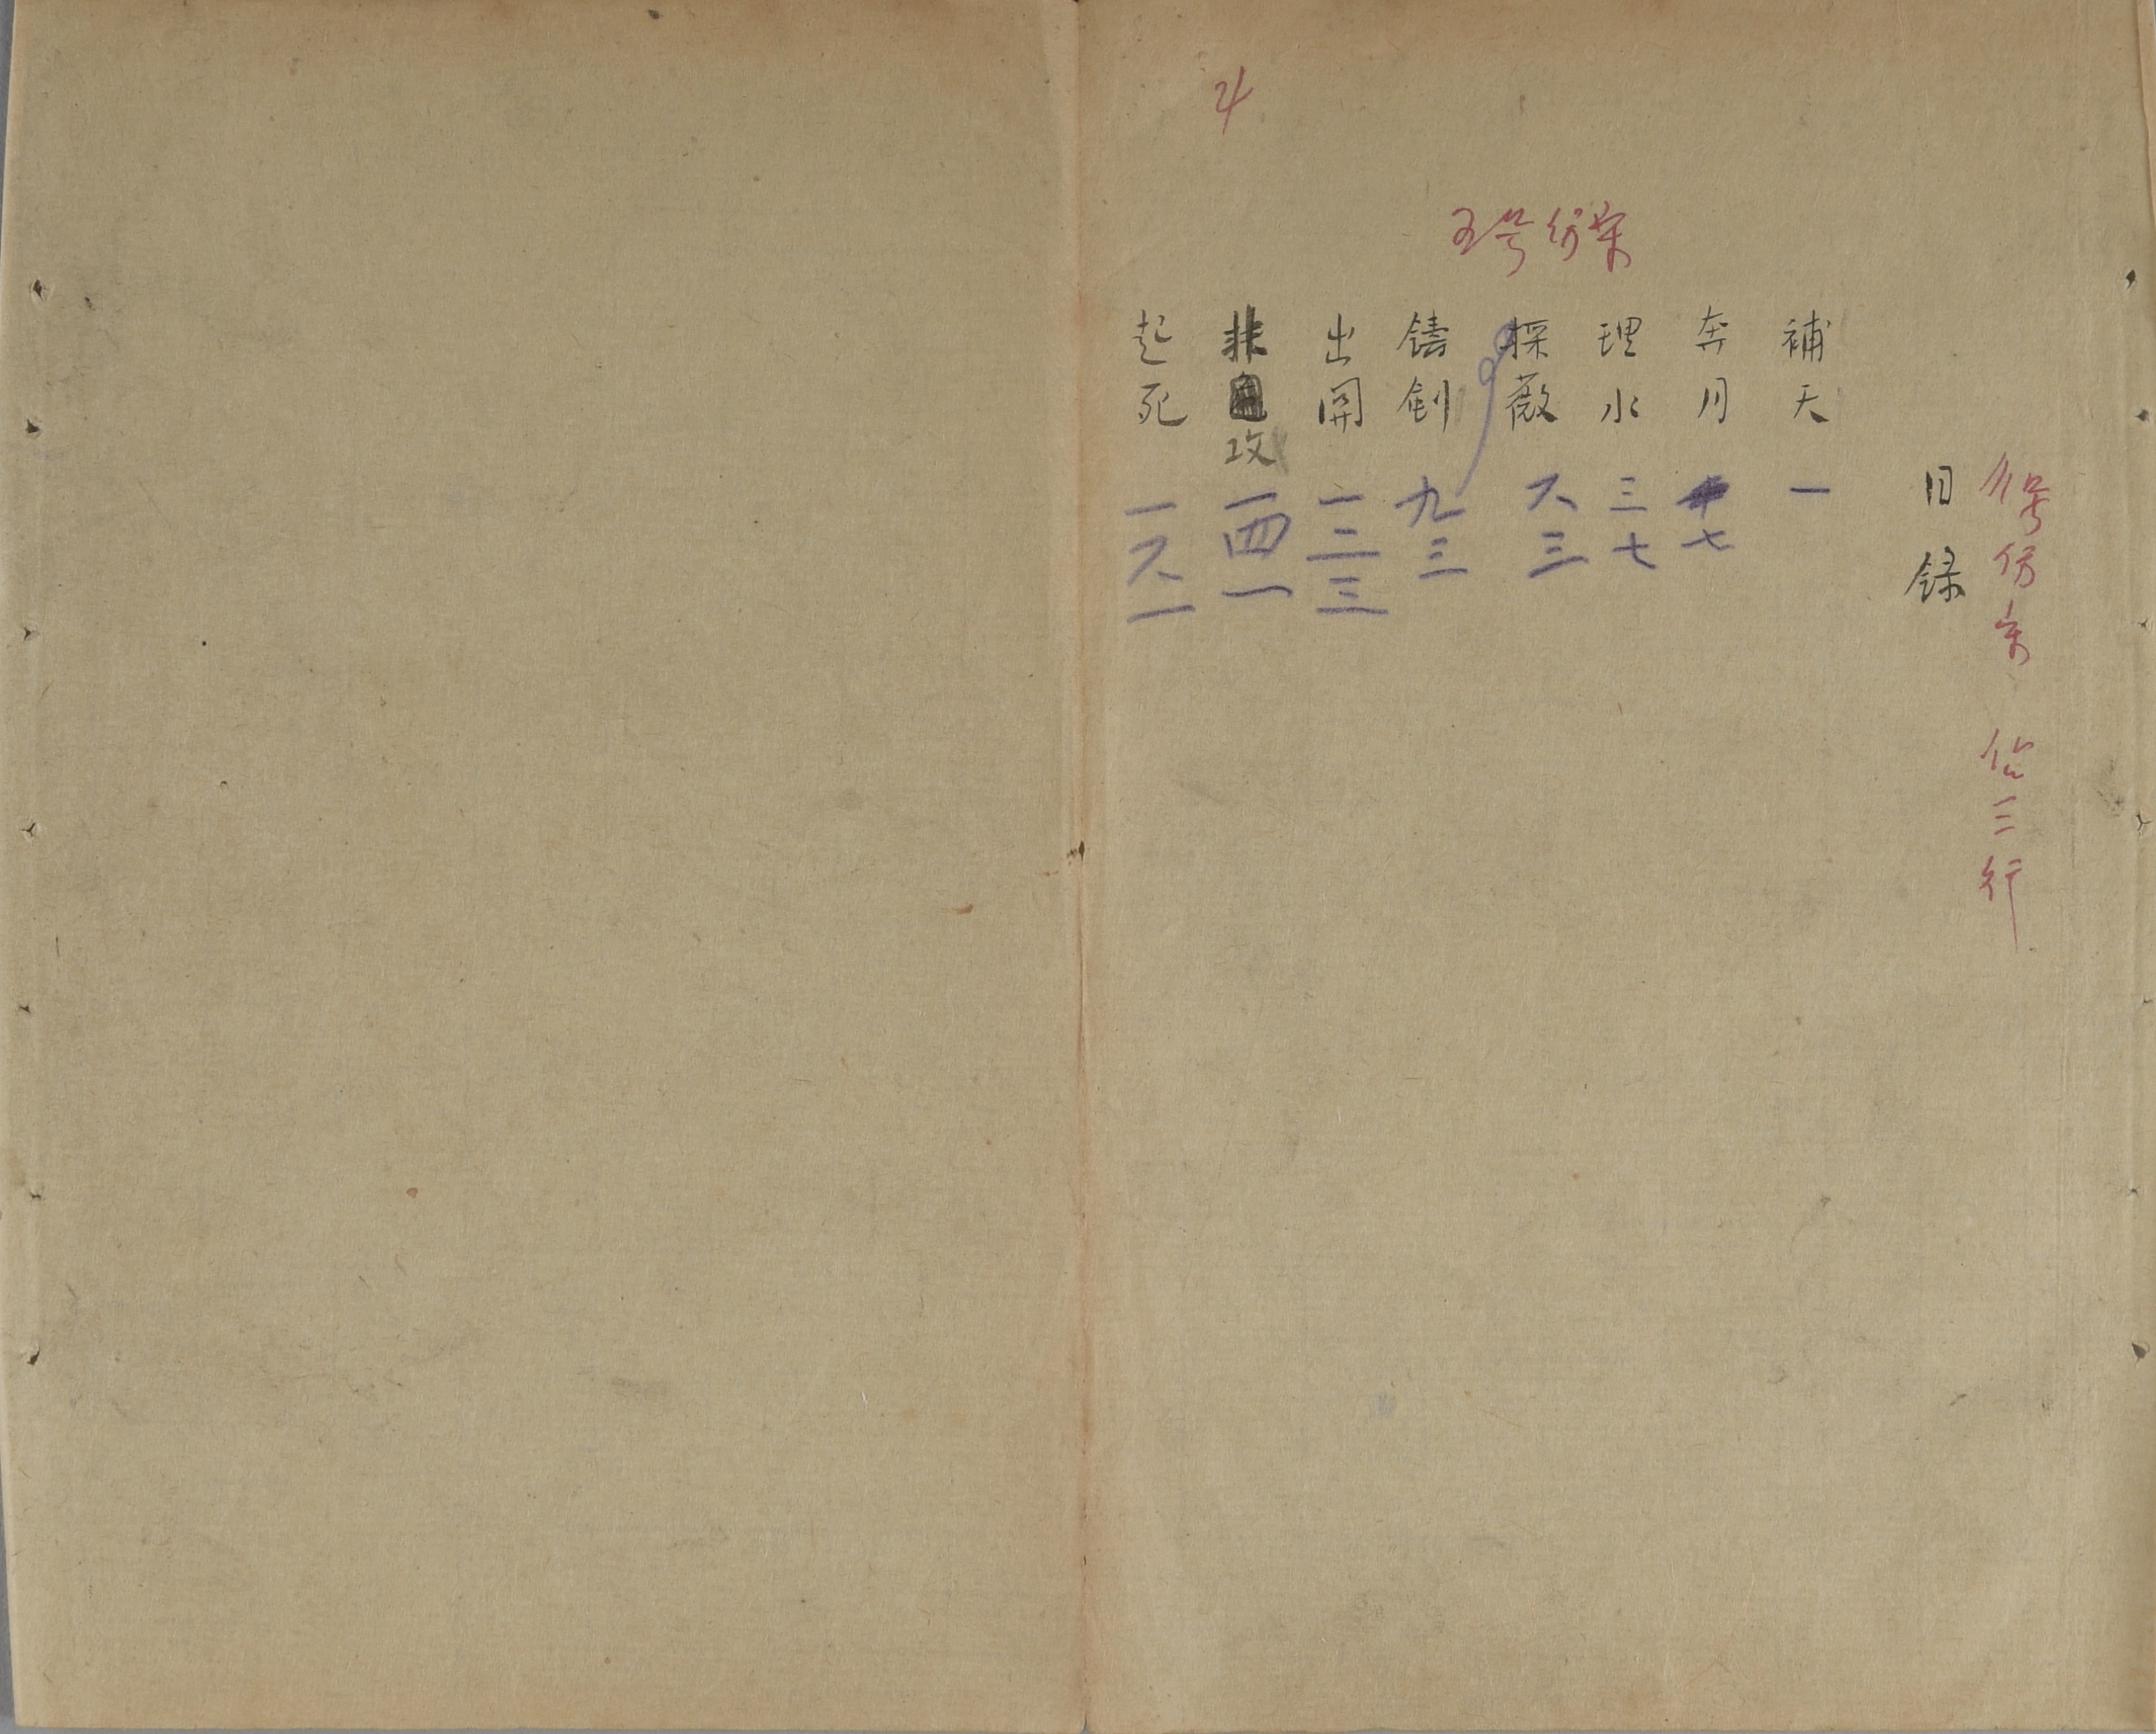 4
五号仿宋
号仿宋 佔三行
目録
補天 一
奔月 七
理水 三七
採薇 六三
鑄劍 九三
出関 一二三
非攻 一四一
起死 一六一